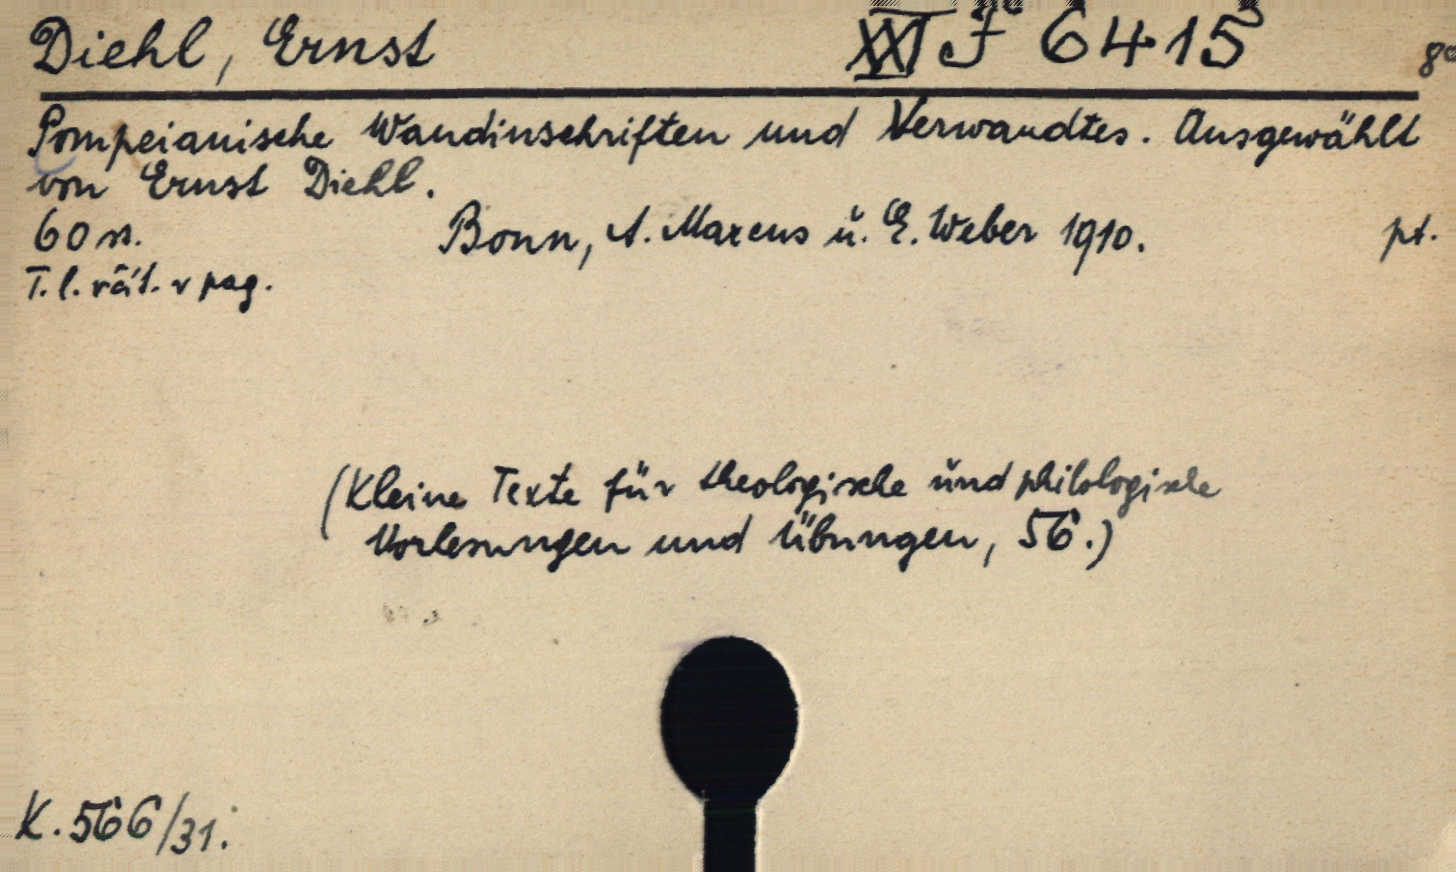 Diehl, Ernst XXI J 6415 8°
Pompeianische Wandinschriften und Verwandtes. Ausgewählt
von Ernst Diehl.
60 s. Bonn, A. Marcus ŭ. E. Weber 1910. pt.
T. l. rät. v pag.
(Kleine Texte für theologische ŭnd philologische
Vorlesungen und Übungen, 56.)
K. 566/31.